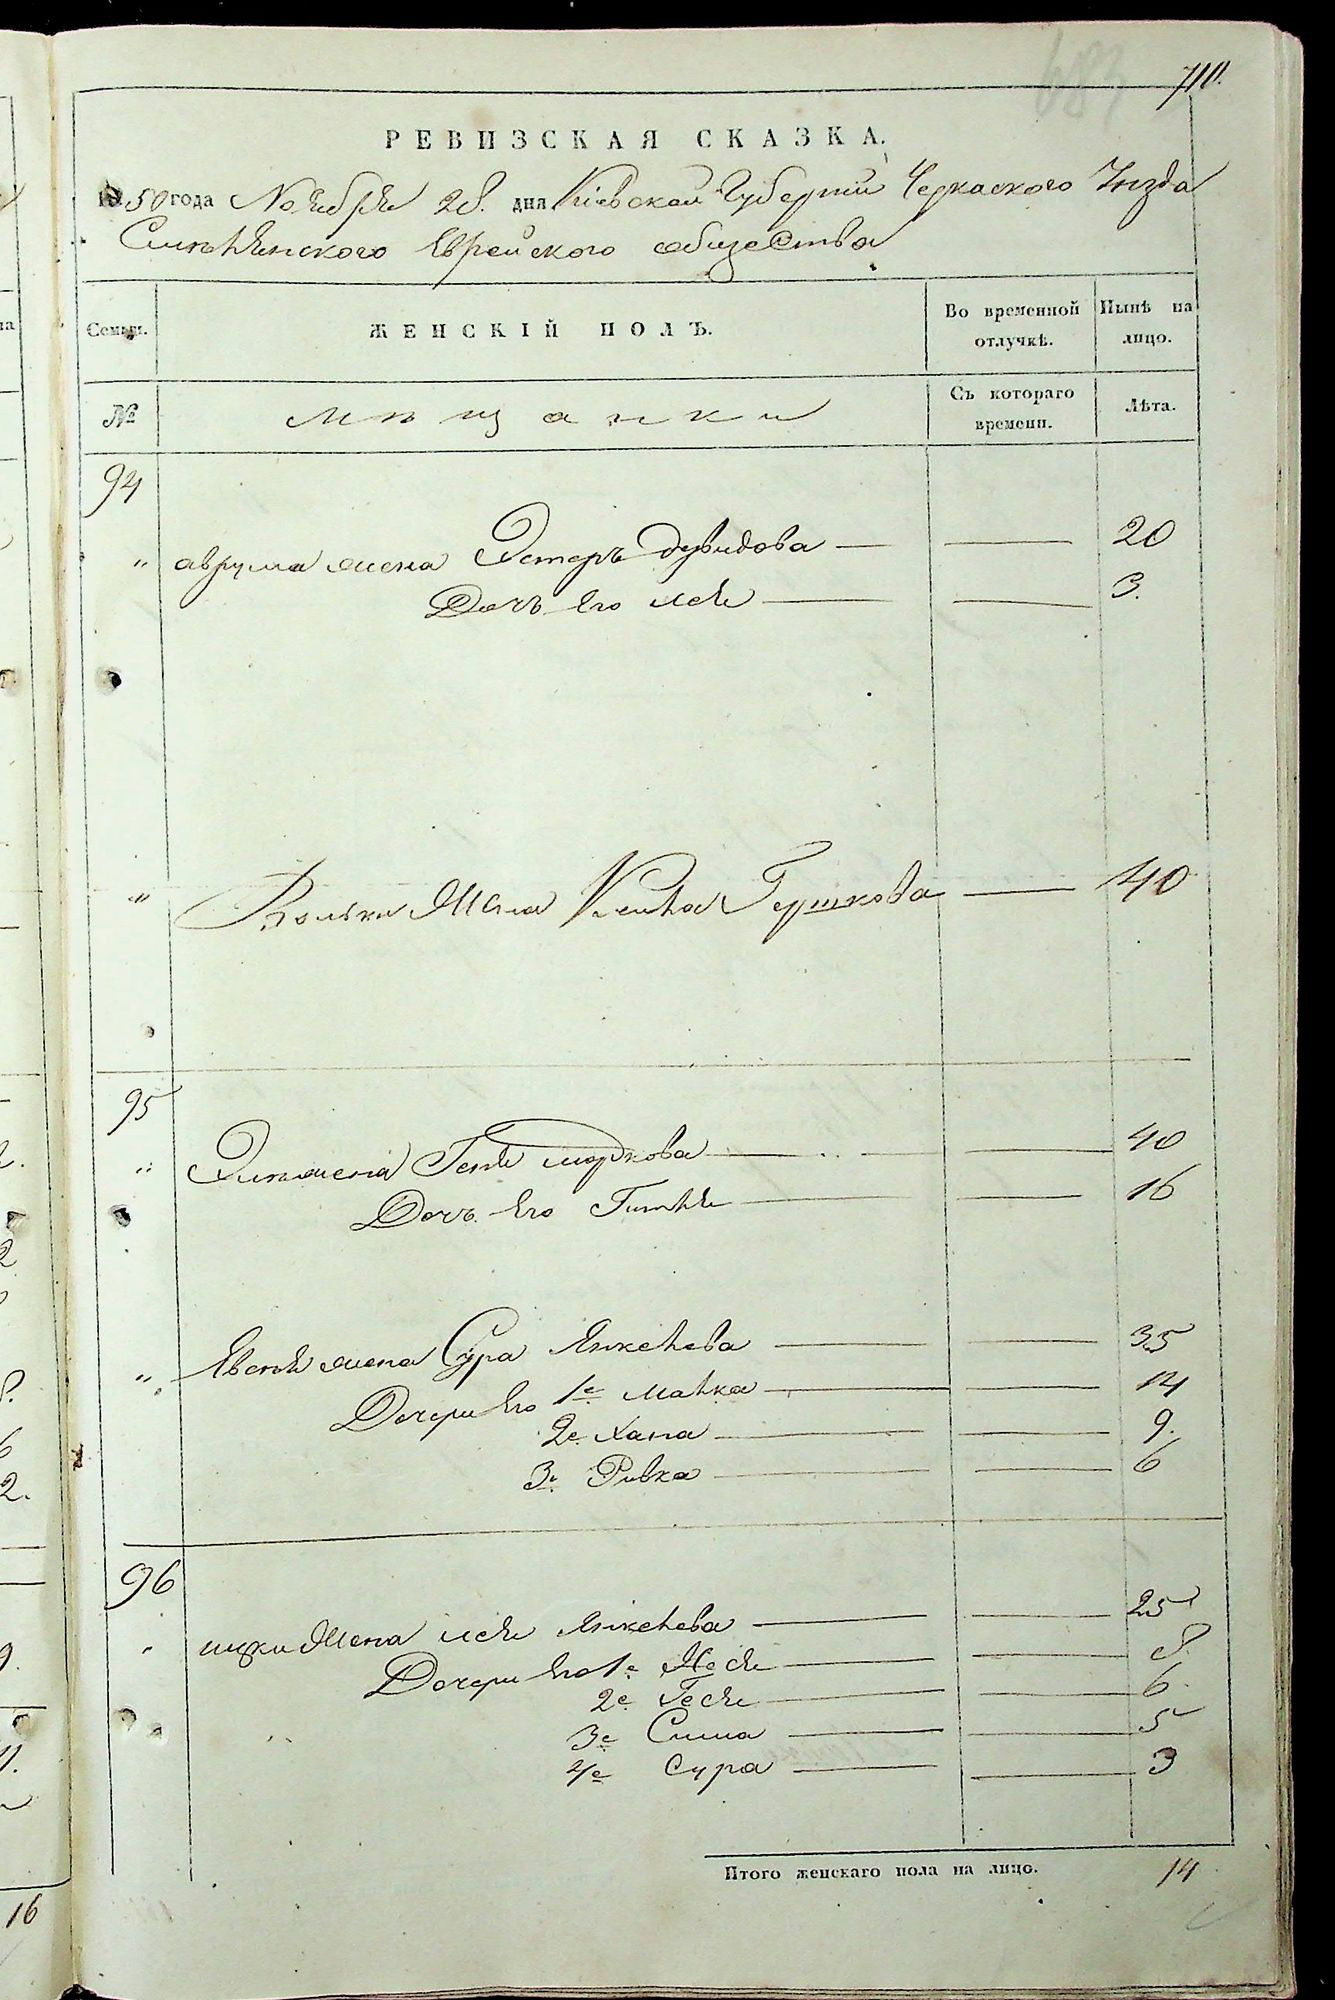 710.
683
РЕВИЗСКАЯ СКАЗКА.
1850 года Ноября 28. дня Кіевской Губерніи Черкаского Уѣзда
Смѣлянского Еврейского общества
Семьи. ЖЕНСКІЙ ПОЛЪ. Во временной отлучкѣ. Нынѣ на лицо.
№ мѣщанки Съ котораго времени. Лѣта.
94
" аврума жена Эстеръ Дувидова — — 20
Дочь Его Лея — — 3.
" Вольки Жена Хейка Гершкова — 40
95
" жена Геня Моркова — — 40
Дочь Его Гитля — — 16
" Евсея жена Сура Янкелева — — 35
Дочери Его 1е Малка — — 14
2е Хана — — 9.
3е Ривка — — 6
96
" Жена Лея Янкелева — — 25
Дочери Его 1е — — 8.
2е Геся — — 6.
3е Сима — — 5
4е Сура — — 3
Итого женскаго пола на лицо. 14
16